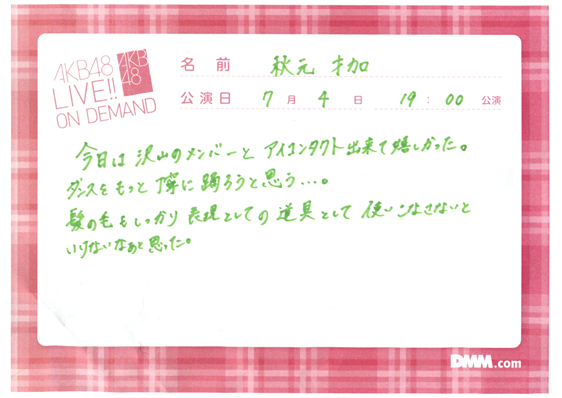 AKB48
LIVE!!
ON DEMAND
AKB
48
名前 秋元 才加
公演日 7月4日 19:00 公演
今日は沢山のメンバーとアイコンタクト出来て嬉しかった。
ダンスをもっと丁寧に踊ろうと思う…。
髪の毛もしっかり表現としての道具として使いこなさないと
いけないなぁと思った。
DMM.com